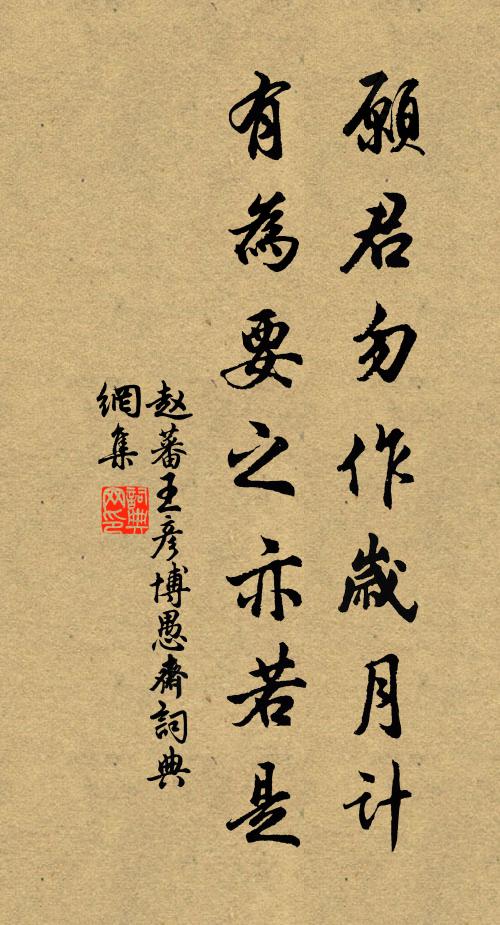 願君勿作歲月计
有為要之亦若是
赵蕃王彥博愚齋詞典
網集
詞典
网印